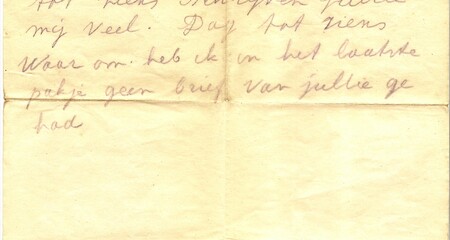 tot ziens schrijven jullie
mij veel. Dag tot ziens
Waar om heb ik in het laatste
pakje geen brief van jullie ge
had